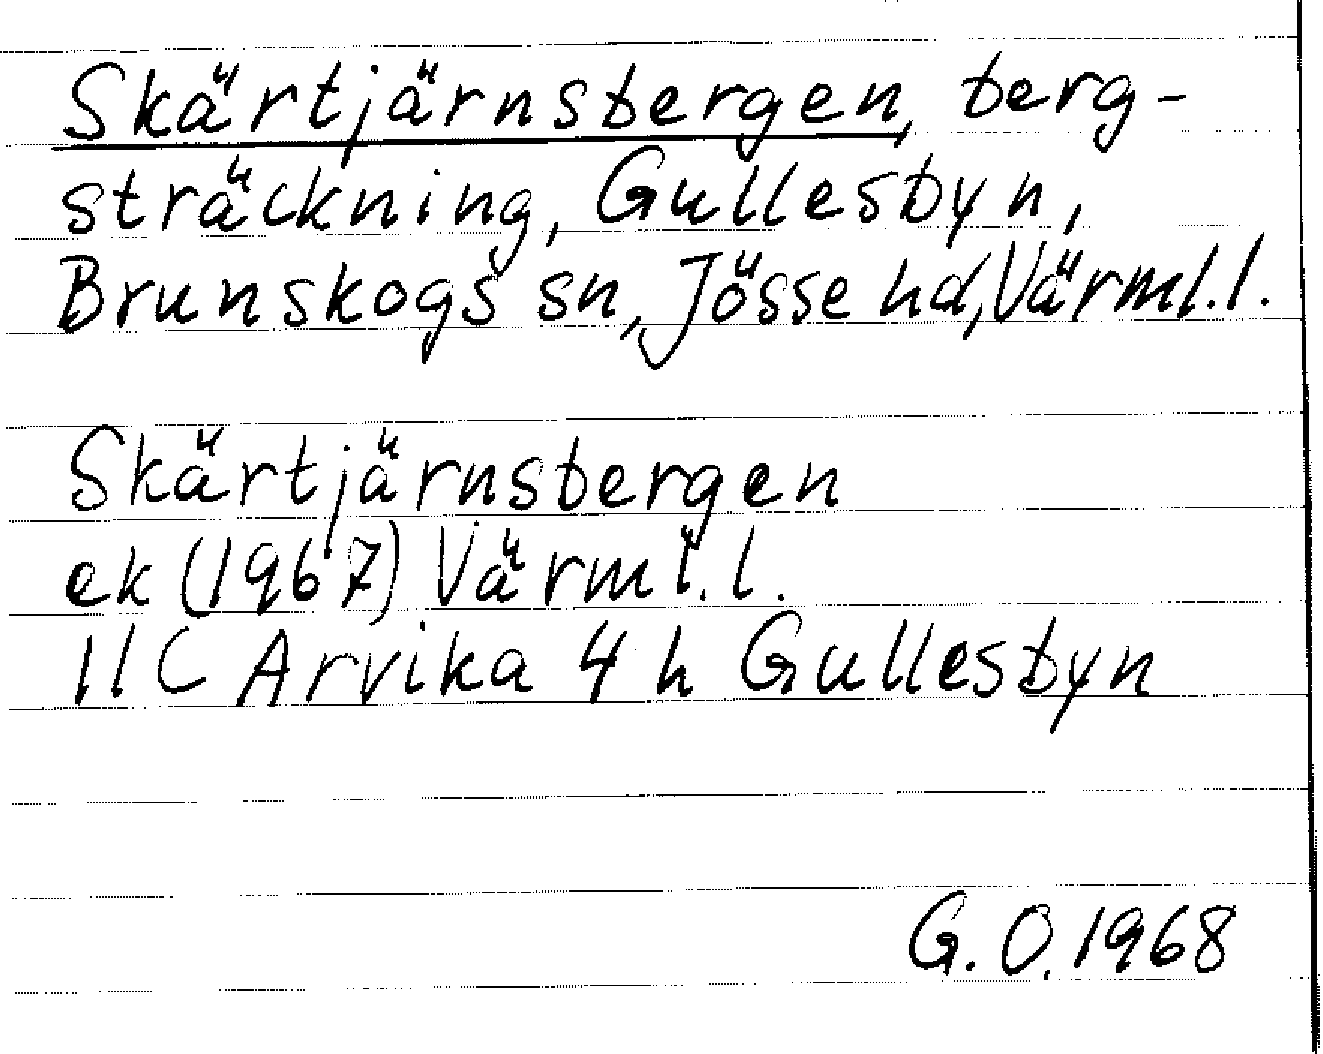 Skärtjärnsbergen, berg-
sträckning, Gullesbyn,
Brunskogs sn, Jösse hd, Värml.l.
Skärtjärnsbergen
ek (1967) Värml.l.
11C Arvika 4 h Gullesbyn
G. O. 1968